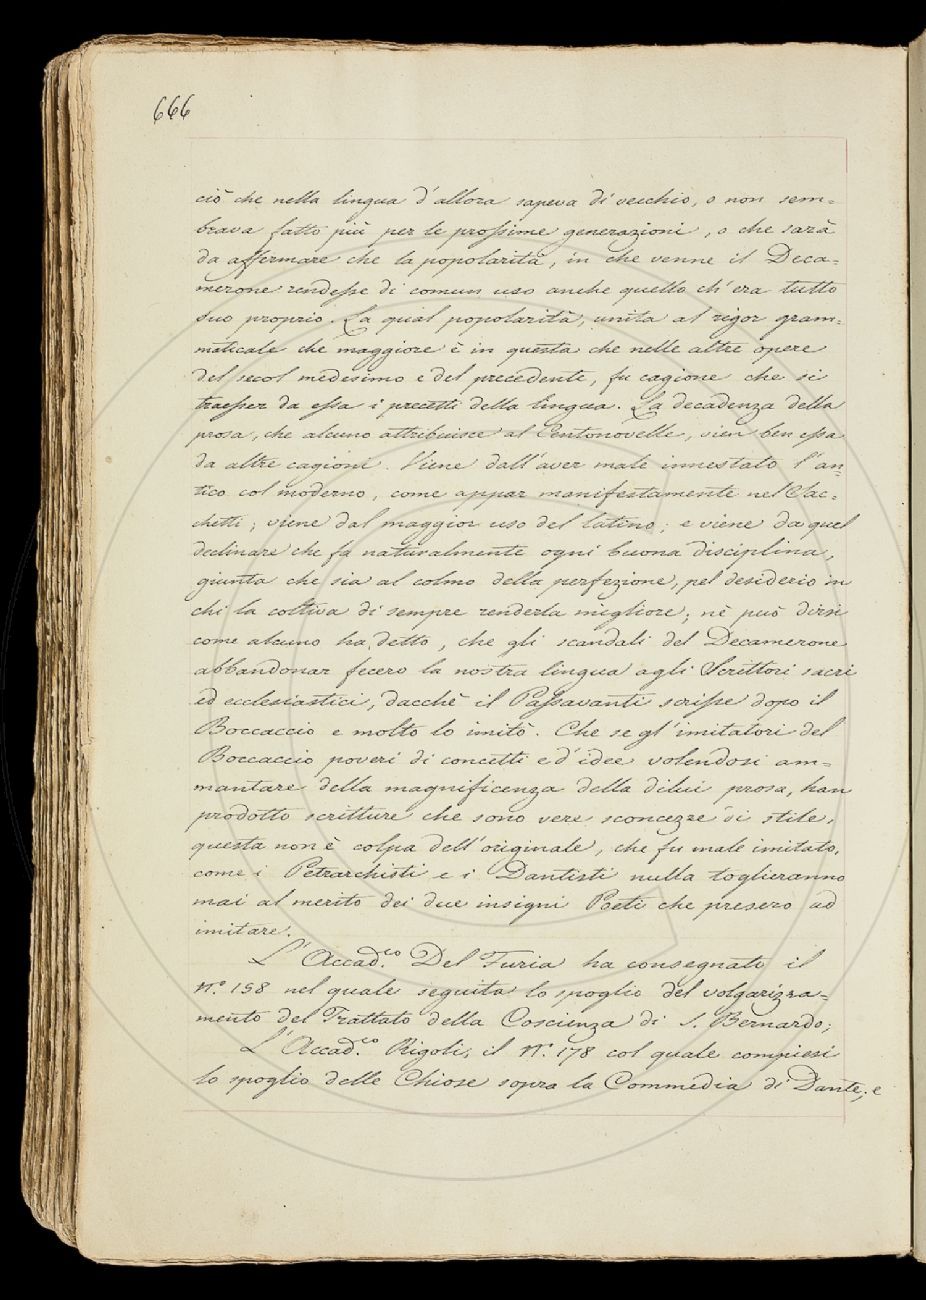 666
ciò che nella lingua d'allora sapeva di vecchio, o non sem=
brava fatto più per le prossime generazioni, o che sarà
da affermare che la popolarità, in che venne il Deca=
merone rendesse di comun uso anche quello ch'era tutto
suo proprio. La qual popolarità, unita al rigor gram=
maticale che maggiore è in questa che nelle altre opere
del secol medesimo e del precedente, fu cagione che si
traesser da essa i precetti della lingua. La decadenza della
prosa, che alcuno attribuisce al Centonovelle, vien ben essa
da altre cagioni. Viene dall'aver male innestato l'an=
tico col moderno, come appar manifestamente nel Sac=
chetti; viene dal maggior uso del latino; e viene da quel
declinare che fa naturalmente ogni buona disciplina,
giunta che sia al colmo della perfezione, pel desiderio in
chi la coltiva di sempre renderla migliore; nè può dirsi
come alcuno ha detto, che gli scandali del Decamerone
abbandonar fecero la nostra lingua agli Scrittori sacri
ed ecclesiastici, dacchè il Passavanti scrisse dopo il
Boccaccio e molto lo imitò. Che se gl'imitatori del
Boccaccio poveri di concetti e d'idee volendosi am=
mantare della magnificenza della dilui prosa, han
prodotto scritture che sono vere sconcezze di stile,
questa non è colpa dell'originale, che fu male imitato,
come i Petrarchisti e i Dantisti nulla toglieranno
mai al merito dei due insigni Poeti che presero ad
imitare.
L'Accad.co Del Furia ha consegnato il
N.o 158 nel quale seguita lo spoglio del volgarizza=
mento del Trattato della Coscienza di S. Bernardo;
L'Accad.co Rigoli, il N.o 178 col quale compiesi
lo spoglio delle Chiose sopra la Commedia di Dante; e